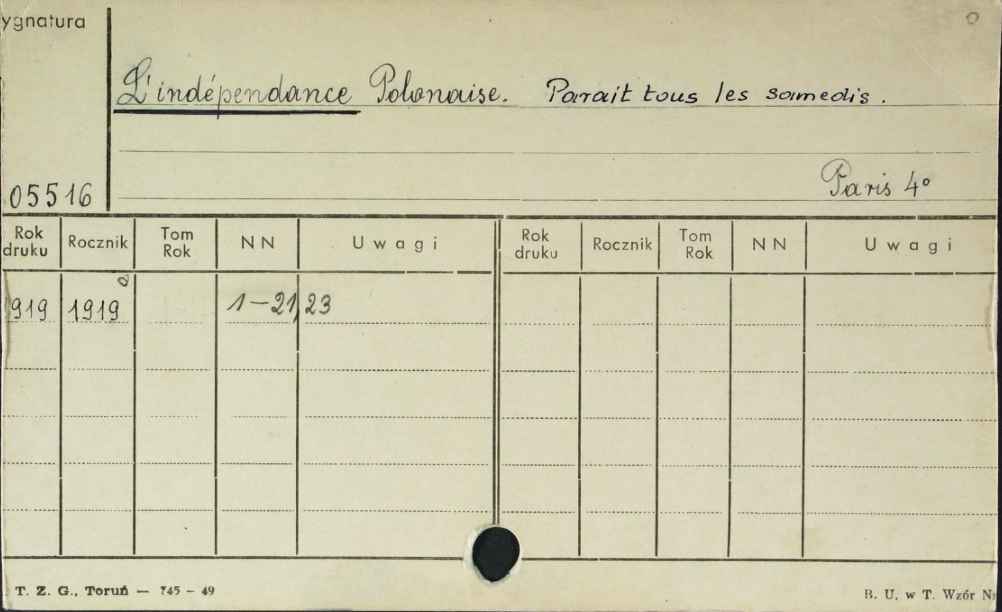 ygnatura
0
L'indépendance Polonaise. Parait tous les samedis.
05516
Paris 4°
Rok druku Rocznik Tom Rok NN Uwagi Rok druku Rocznik Tom Rok NN Uwagi
919 1919 1-21,23
T. Z. G., Toruń — 745 - 49
B. U. w T. Wzór N